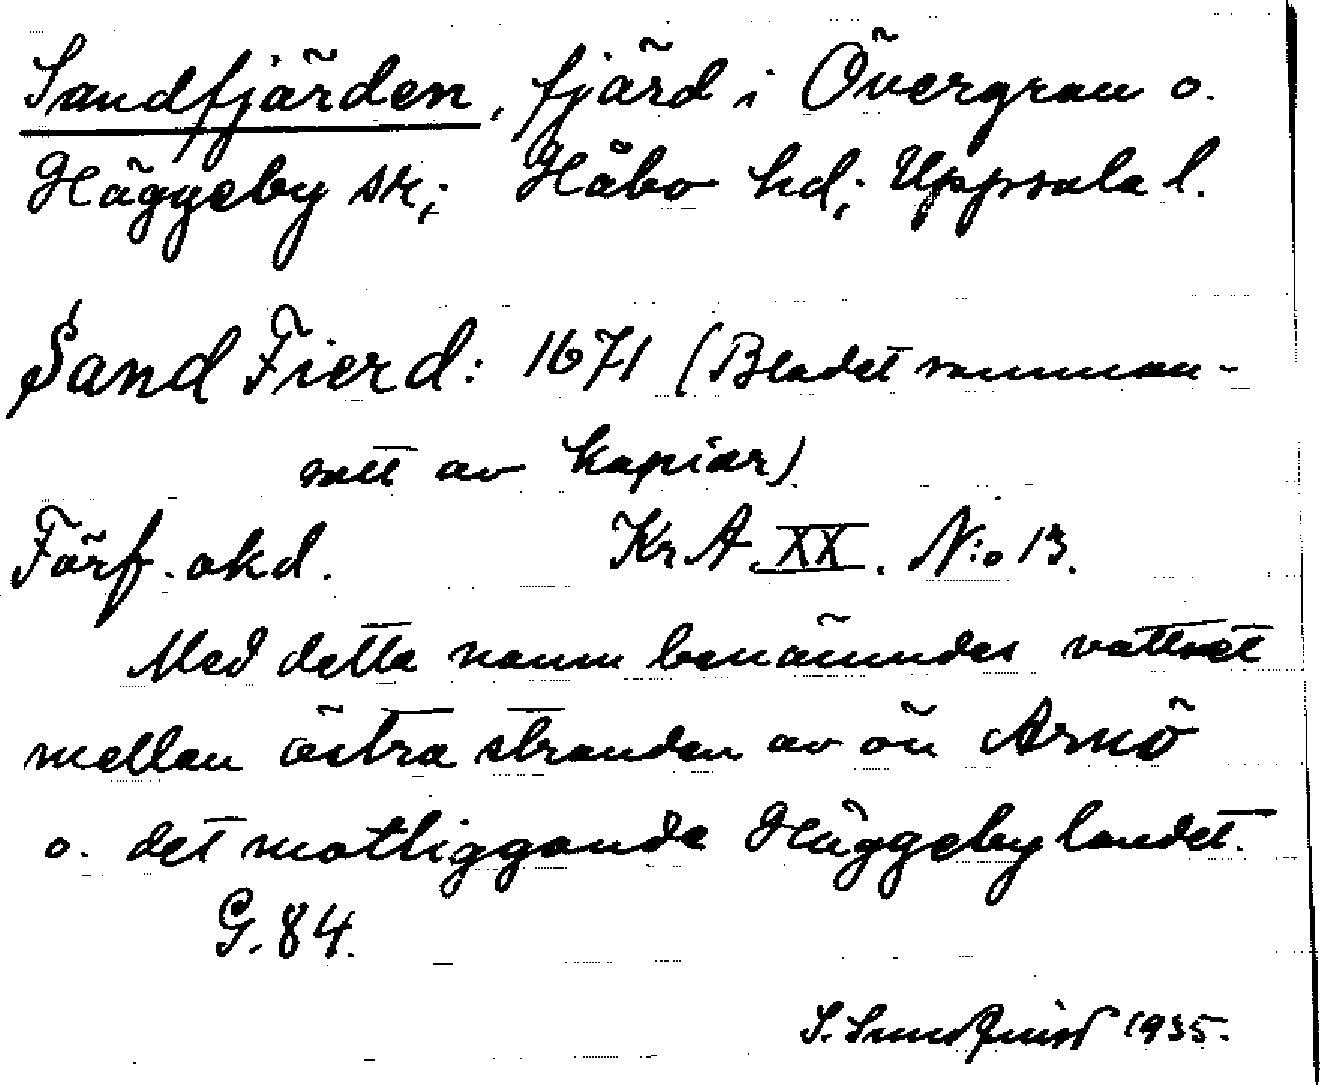 Sandfjärden, fjärd i Övergran o.
Häggeby snr; Håbo hd; Uppsala l.
Sand Fierd: 1671 (Bladet numran-
rott av kopior)
Förf. okd. Kr A. XX. N:o 13.
Med detta namn benämndes vattnet
mellan östra stranden av ön Arnö
o. det motliggande Häggebylandet.
G. 84.
S. Sundquist 1935.